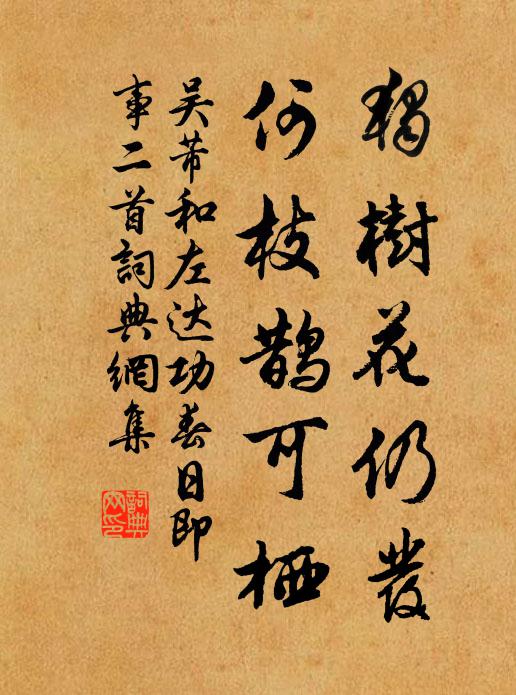 獨樹花仍發
何枝鵲可栖
吴芾和左达功春日即
事二首詞典網集
詞典网印